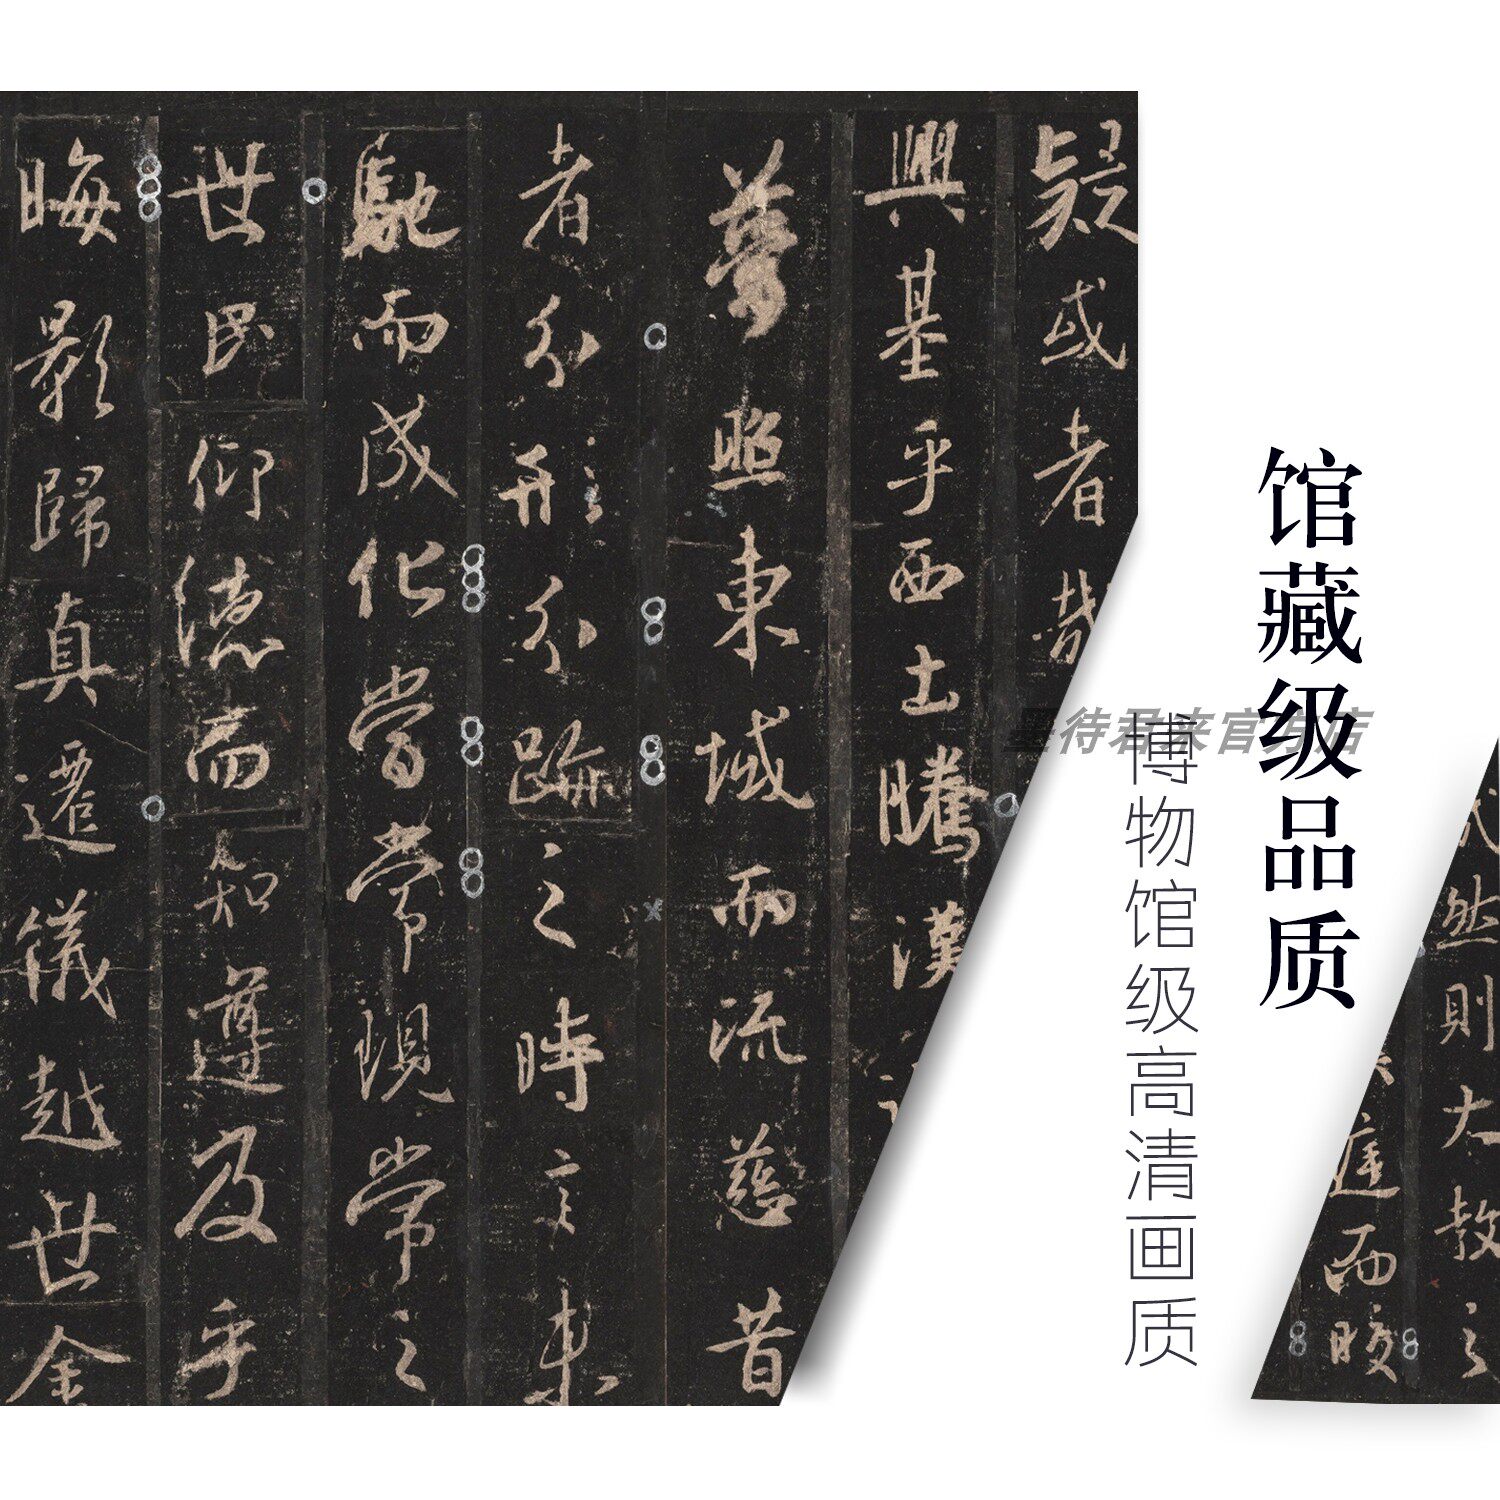 疑或者哉
興基乎西土騰漢
夢照東域而流慈昔
者分形分跡之時言未
馳而成化當常現常之
世民仰德而知遵及乎
晦影歸真遷儀越世金
馆藏级品质
博物馆级高清画质
墨待君来官方店
然則大教之
庭而皎